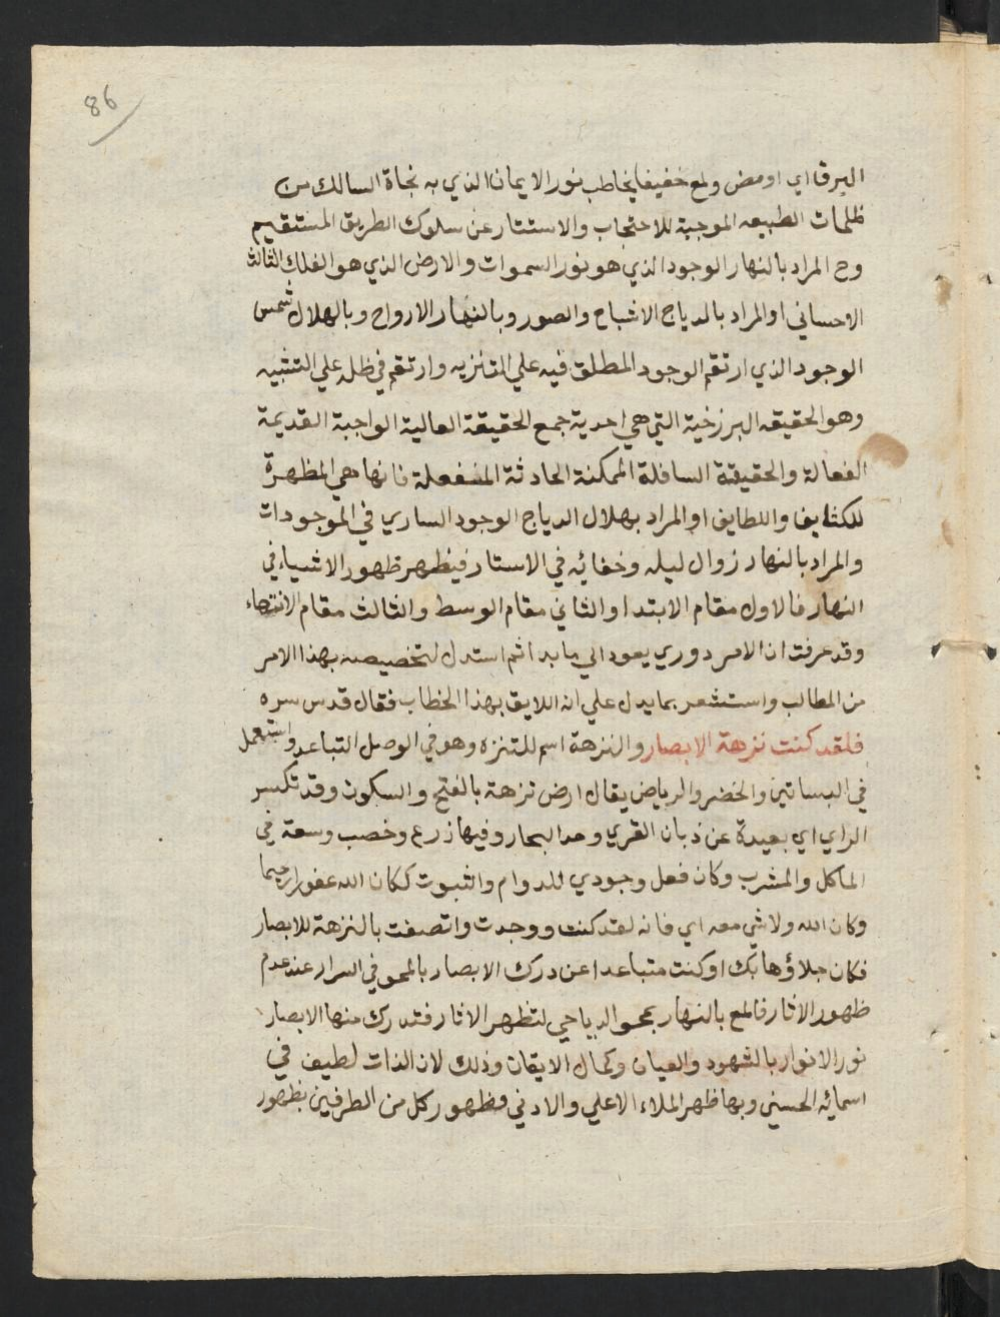 86
البرق اي اومض ولمع خفيفا يخاطب نور الايمان الذي به نجاة السالك من
ظلمات الطبيعه الموجبة للاحتجاب والاستتار عن سلوك الطريق المستقيم
وح المراد بالنهار الوجود الذي هو نور السموات والارض الذي هو الفلك الثالث
الاحساني او المراد بالدياج الاشباح والصور وبالنهار الارواح وبالهلال شمس
الوجود الذي ارتقم الوجود المطلق فيه علي التنزيه وارتقم في ظله علي التشبيه
وهو الحقيقه البرزخية التي هي احدية جمع الحقيقة العالية الواجبة القديمة
الفعالة والحقيقة السافلة الممكنة الحادثة المنفعلة فانها هي المظهرة
للكثايف واللطايف او المراد بهلال الدياج الوجود الساري في الموجودات
والمراد بالنهار زوال ليله وخفائه في الاستار فيظهر ظهور الاشياء في
النهار فالاول مقام الابتدا والثاني مقام الوسط والثالث مقام الانتهاء
وقد عرفت ان الامر دوري يعود الي ما بدا ثم استدل لتخصيصه بهذا الامر
من المطالب واستشعر بما يدل علي انه اللايق بهذا الخطاب فقال قدس سره
فلقد كنت نزهة الابصار والنزهة اسم للتنزه وهو في الوصل التباعد واستعمل
في البساتين والخضر والرياض يقال ارض نزهة بالفتح والسكون وقد تكسر
الزاي اي بعيدة عن ذبان القري وعد البحار وفيها زرع وخصب وسعة في
الماكل والمشرب وكان فعل وجودي للدوام والثبوت ككان الله غفورا رحيما
وكان الله ولا شي معه اي فانه لقد كنت ووجدت واتصفت بالنزهة للابصار
فكان جلاؤها بك او كنت متباعدا عن درك الابصار بالمحو في السرار عند عدم
ظهور الاثار فالمع بالنهار بمحو الدياجي لتظهر الاثار فتدرك منها الابصار
نور الانوار بالشهود والعيان وكمال الايقان وذلك لان الذات لطيف في
اسمائه الحسني وبها ظهر الملاء الاعلي والادني فظهور كل من الطرفين بظهور